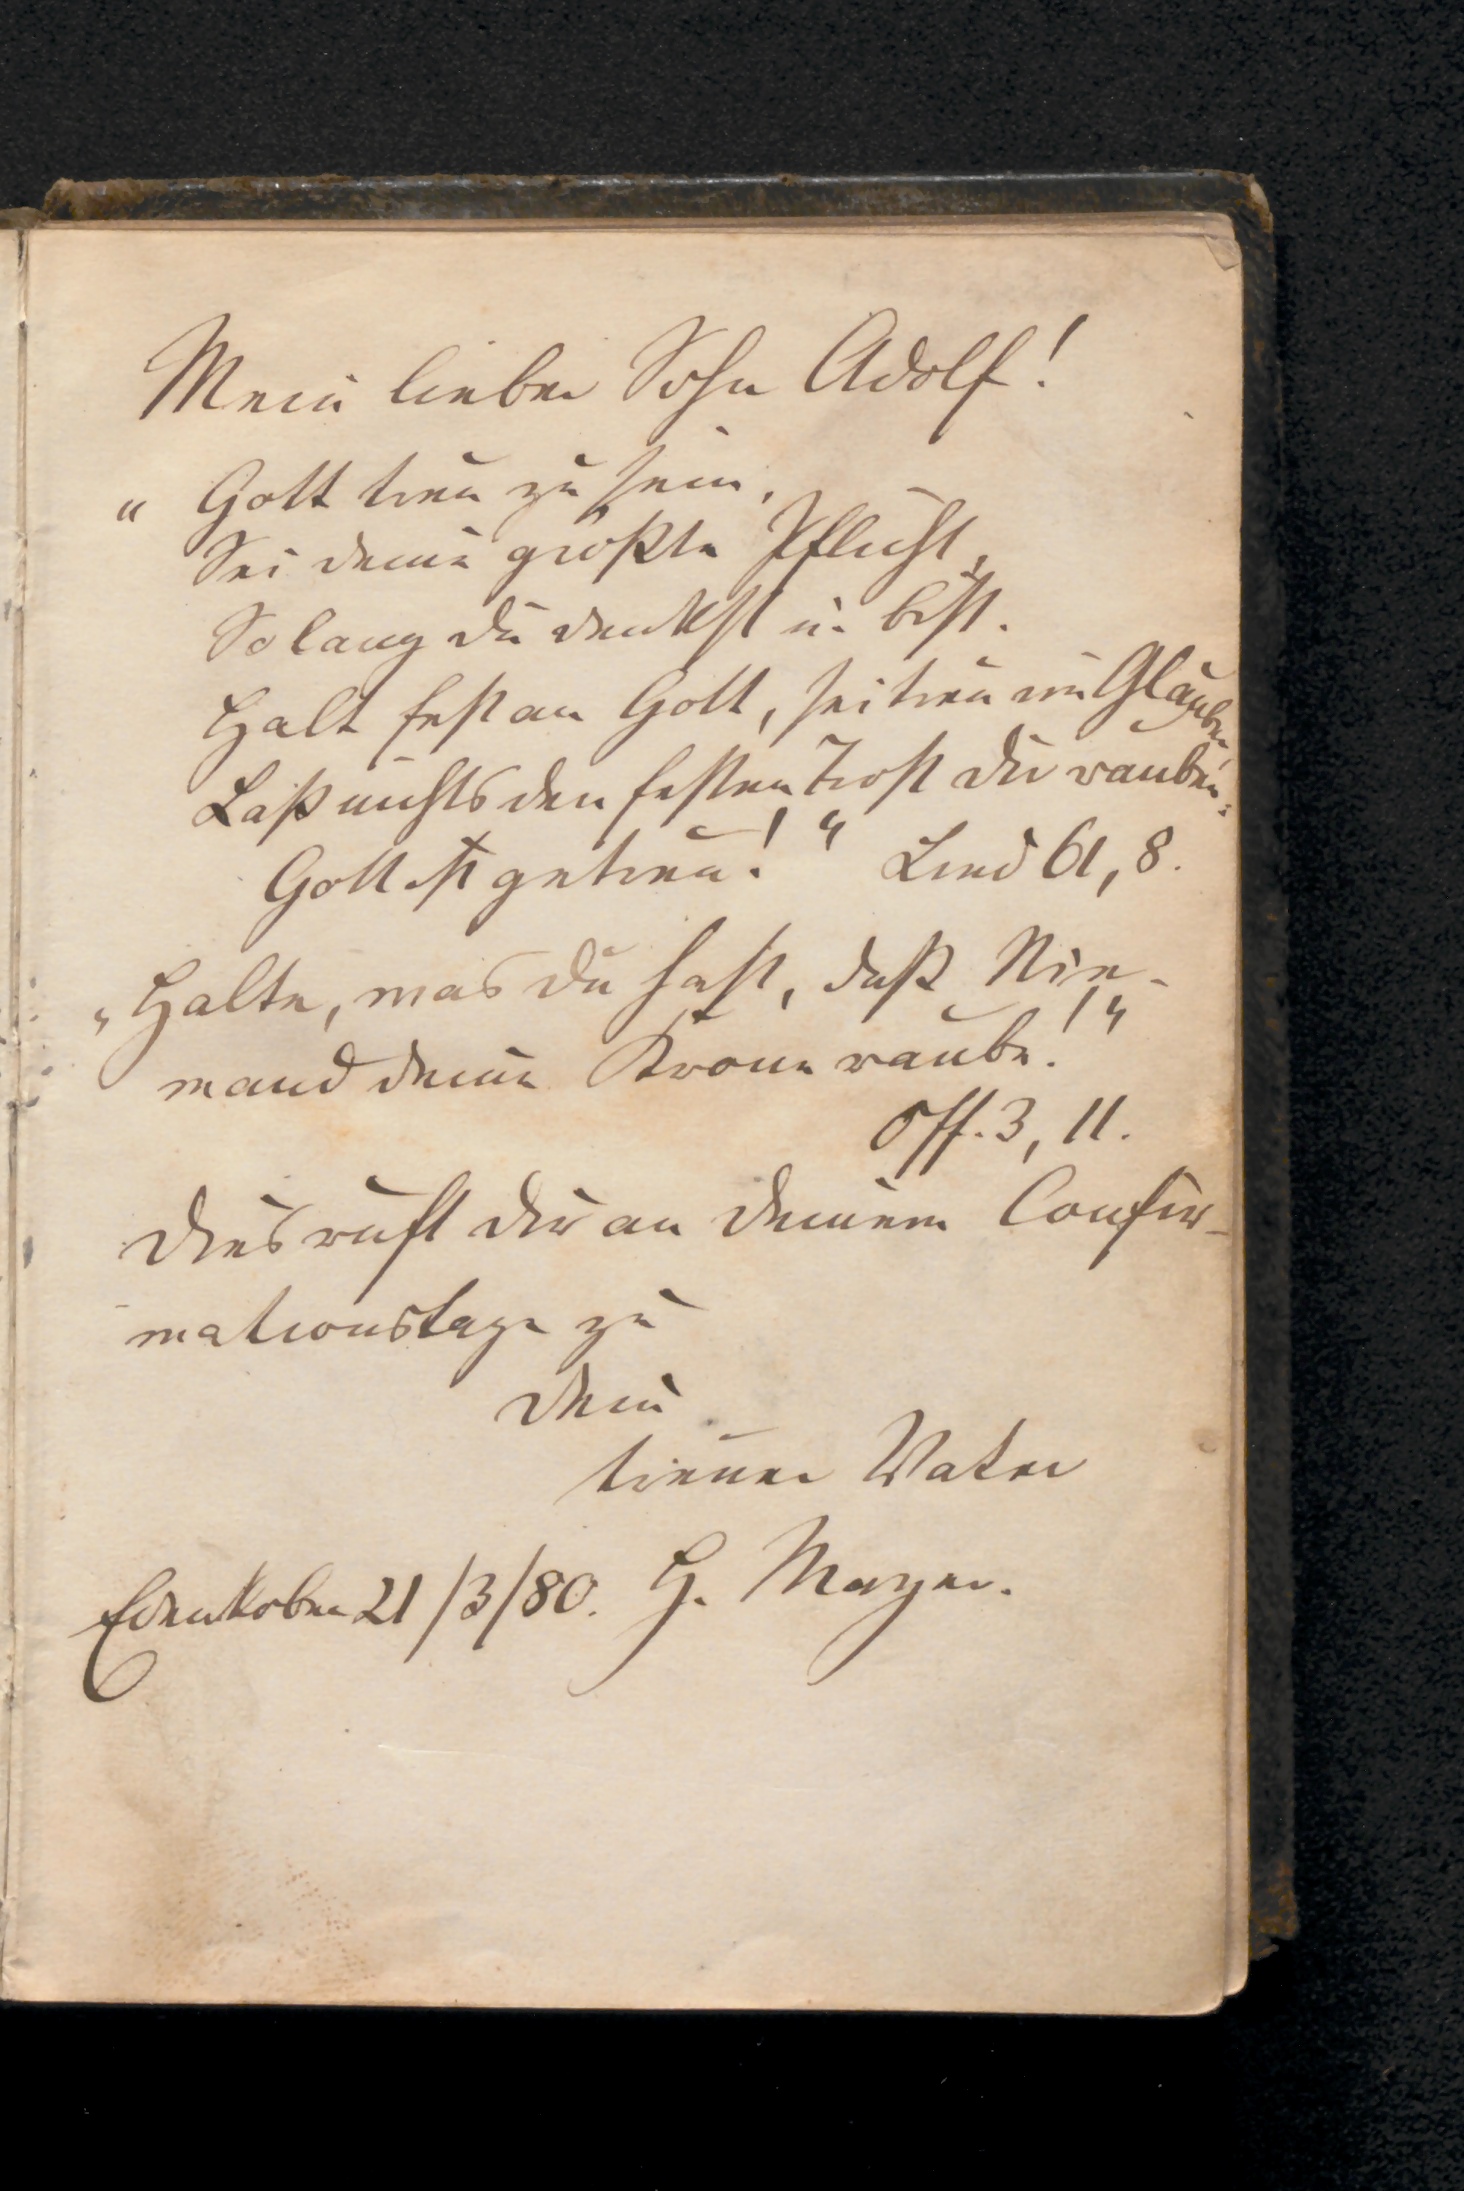 Mein lieber Sohn Adolf!
„ Gott treu zu sein,
Sei deine größte Pflicht,
So lang du denkst u. bist.
Halt fest an Gott, sei treu im Glauben,
Laß nichts den festen Trost dir rauben:
Gott ist getreu!“ Lied 61, 8.
„Halte, was du hast, daß Nie-
mand deine Krone raube!“
Off. 3, 11.
Dies ruft dir an deinem Confir-
mationstage zu
dein
treuer Vater
Edenkoben 21/3/80. H. Mayer.